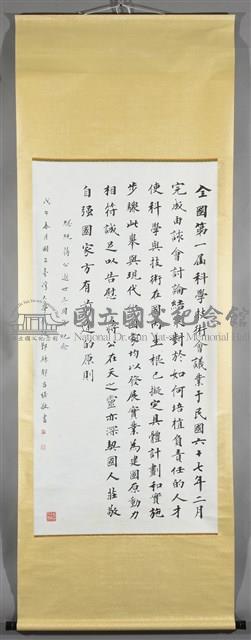 全國第一屆科學技術會議業于民國六十七年二月
完成由該會討論結論對於如何培植負責任的人才
使科學與技術在國內生根已擬定具體計劃和實施
步驟此舉與現代國家均以發展實業為建國原動力
相符誠足以告慰 蔣公在天之靈亦深契國人莊敬
自强國家方有前途的原則
總統蔣公逝世三週年紀念
戊午春月國立臺灣大學
國立國父紀念館
National Dr. Sun Yat-sen Memorial Hall